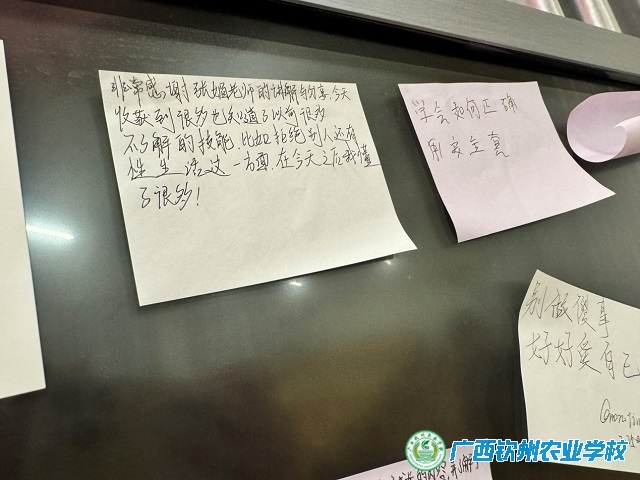 非常感谢张娟老师的讲解与分享,今天
收获到很多也知道了以前很多
不了解的技能.比如拒绝别人还有
性生活这一方面.在今天之后我懂
了很多!
学会如何正确
用安全套
别做傻事
好好爱自己
广西钦州农业学校